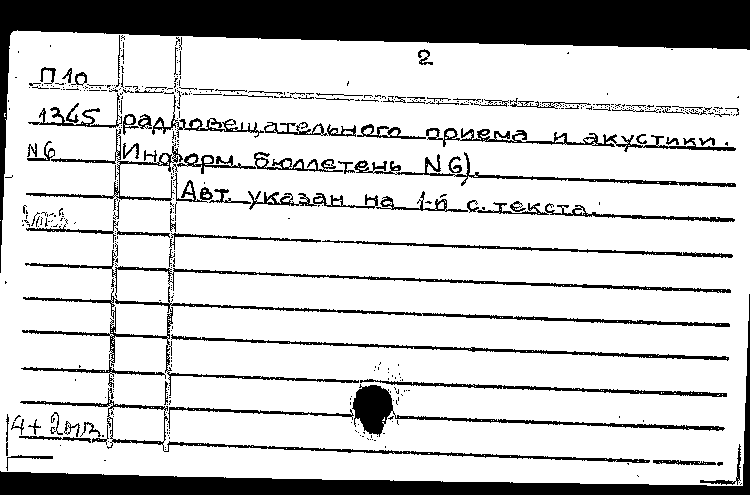 2
П10
1345 радиовещательного приема и акустики.
N6 Информ. бюллетень N6).
Авт. указан на 1-й с. текста.